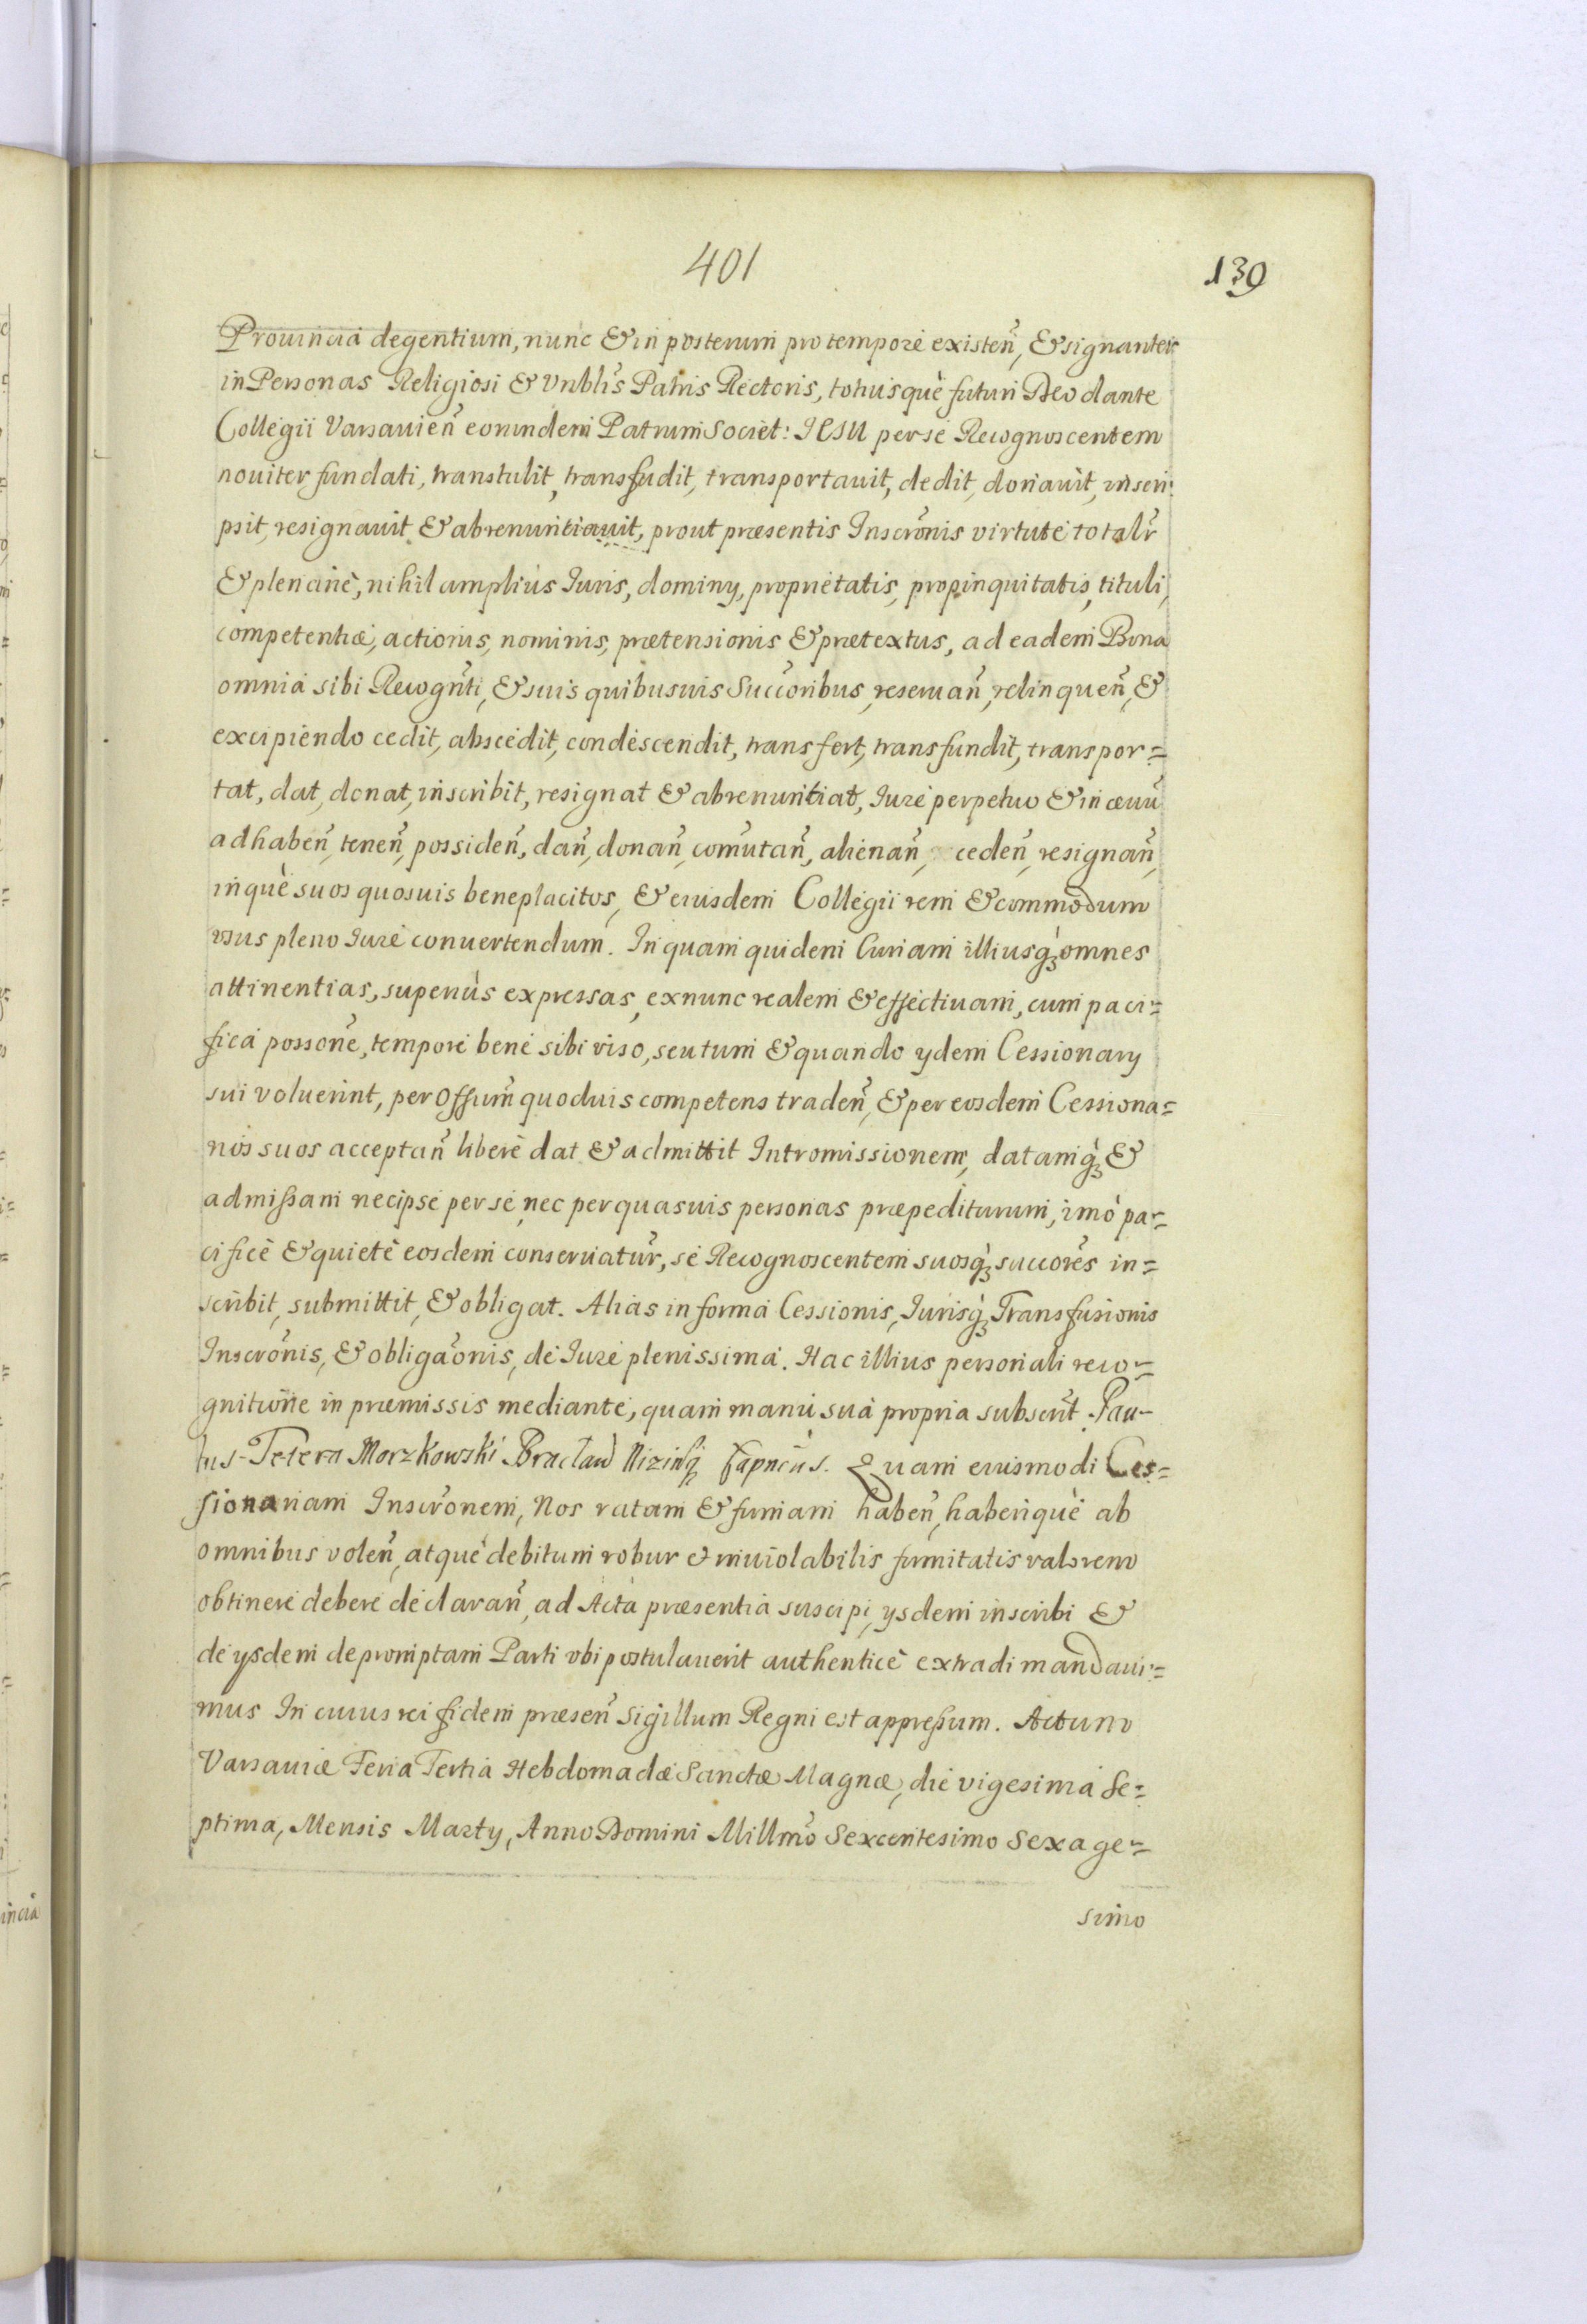 401
139
Prouincia degentium, nunc & in posterum pro tempore existen̄, & signanter
in Personas Religiosi & Vnblis Patris Rectoris, totiusquè futuri Deo dante
Collegii Varsauien̄ eorundem Patrum Societ: IESU per se Recognoscentem
nouiter fundati, transtulit, transfudit, transportauit, dedit, donauit, inscri:
psit, resignauit & abrenuntiauit, prout præsentis Inscrōnis virtute totalr̄
& plenariè, nihil amplius Iuris, dominy, proprietatis, propinquitatis, tituli,
competentiæ, actionis, nominis, prætensionis & prætextus, ad eadem Bona
omnia sibi Recogn̄ti, & suis quibusuis Succōribus, reseruan̄, relinquen̄, &
excipiendo cedit, abscedit, condescendit, transfert, transfundit, transpor=
tat, dat, donat, inscribit, resignat & abrenuntiat, Iure perpetuo & in æuū
ad haben̄, tenen̄, possiden̄, dan̄, donan̄, com̄utan̄, alienan̄, ceden̄, resignan̄,
inquè suos quosuis beneplacitos, & eiusdem Collegii rem & commodum
vsus pleno Iure conuertendum. In quam quidem Curiam illiusq́ȝ omnes
attinentias, superiùs expressas, ex nunc realem & effectiuam, cum paci=
fica possōne, tempore bene sibi viso, seu tum & quando ydem Cessionary
sui voluerint, per Offum̄ quoduis competens traden̄, & per eosdem Cessiona=
rios suos acceptan̄ liberè dat & admittit Intromissionem, datamq́ȝ &
admißam nec ipse per se, nec per quasuis personas præpediturum, imò pa=
cificè & quietè eosdem conseruatur̄, se Recognoscentem suosq́ȝ succorēs in=
scribit, submittit, & obligat. Alias in forma Cessionis, Iurisq́ȝ Transfusionis
Inscrōnis, & obligaōnis, de Iure plenissima. Hac illius personali reco=
gnitione in præmissis mediante, quam manu sua propria subscri̅t. Pau-
lus Tetera Morzkowski Bracław Nizinsq́ Capneūs. Quam eiusmodi Ces=
sionariam Inscrōnem, Nos ratam & firmam haben̄, haberiquè ab
omnibus volen̄, atquè debitum robur & inuiolabilis firmitatis valorem
obtinere debere declaran̄, ad Acta præsentia suscipi, ysdem inscribi &
de ysdem depromptam Parti vbi postulauerit authenticè extradi mandaui=
mus In cuius rei fidem præsen̄ Sigillum Regni est appreßum. Actum
Varsauiæ Feria Tertia Hebdomadæ Sanctæ Magnæ, die vigesima Se=
ptima, Mensis Marty, Anno Domini Millmō Sexcentesimo Sexage=
simo